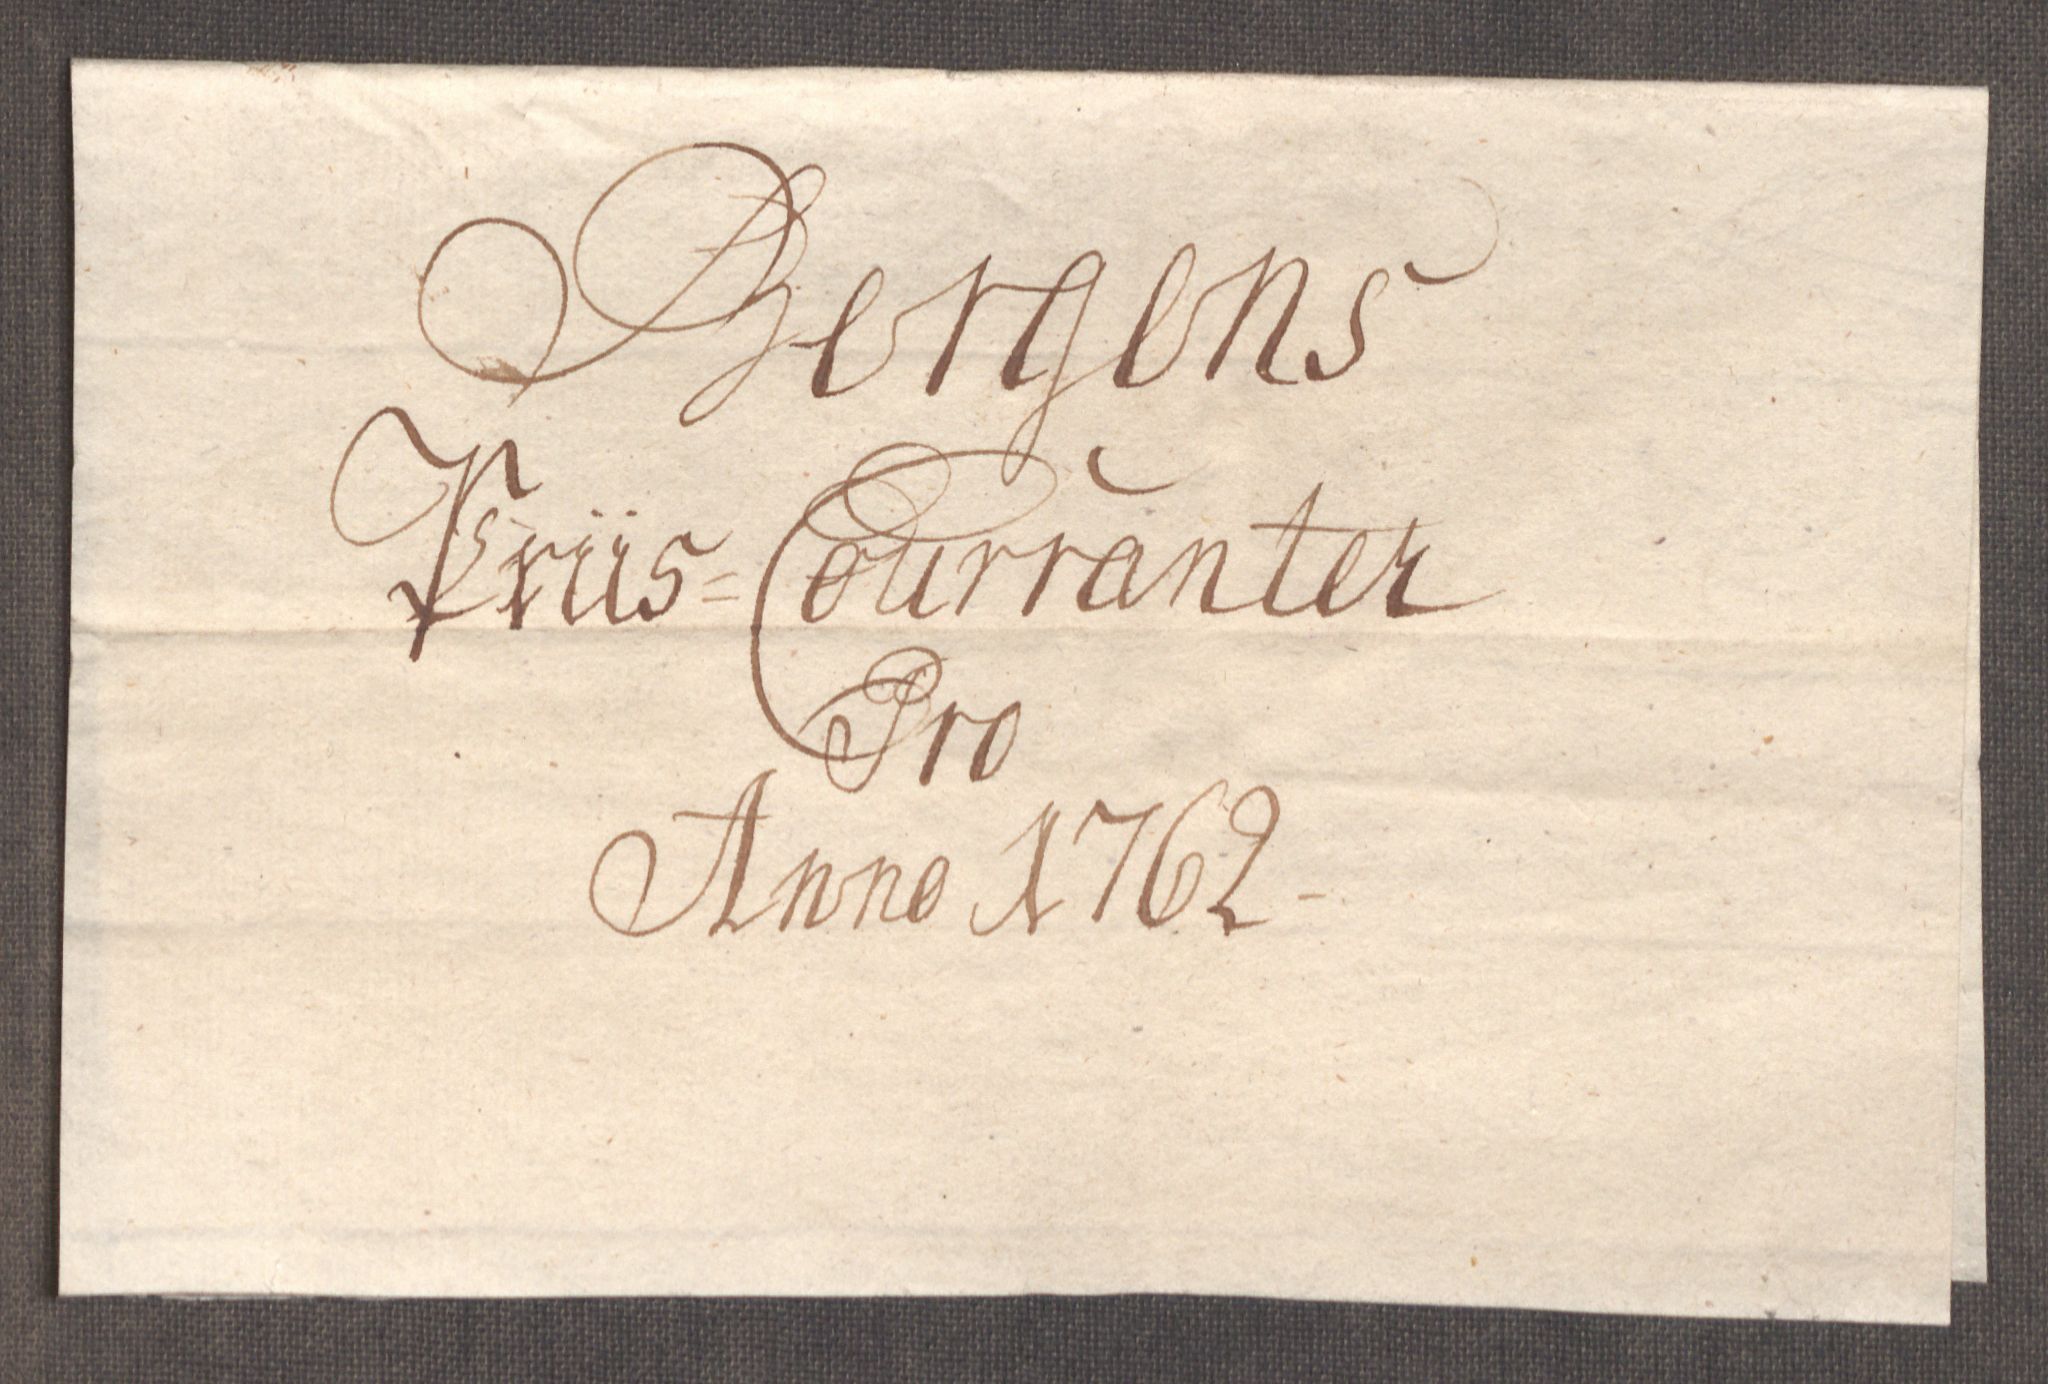 Bergens
Priis=Courranter
Pro
Anno 1762-